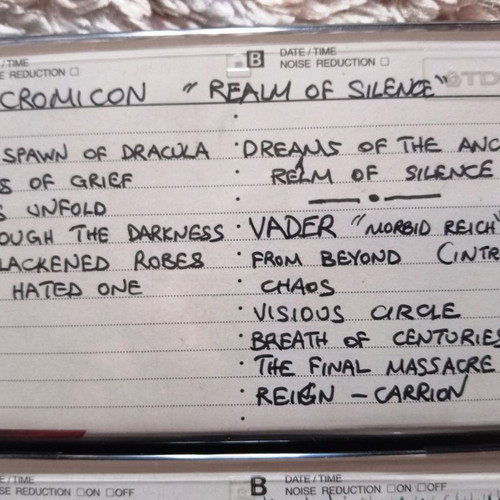 /TIME
E REDUCTION
B DATE/TIME
NOISE REDUCTION
TD
CROMICON "REALM OF SILENCE"
SPAWN OF DRACULA
S OF GRIEF
S UNFOLD
OUGH THE DARKNESS
LACKENED ROBES
HATED ONE
DREAMS OF THE ANC
RELM OF SILENCE
VADER "MORBID REICH"
FROM BEYOND (INTR
CHAOS
VISIOUS CIRCLE
BREATH OF CENTURIES
THE FINAL MASSACRE
REIGN - CARRION
E/TIME
SE REDUCTION ON OFF
B DATE/TIME
NOISE REDUCTION ON OFF